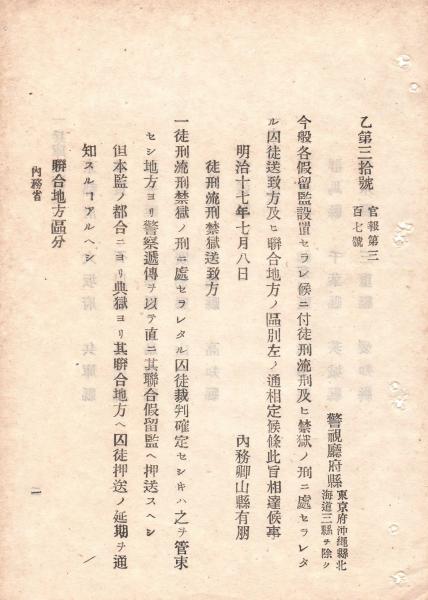 乙第三拾號
官報第三
百七號
警視廳府縣
東京府沖繩縣北
海道三縣ヲ除ク
今般各假留監設置セラレ候ニ付徒刑流刑及ヒ禁獄ノ刑ニ處セラレタ
ル囚徒送致方及ヒ聯合地方ノ區別左ノ通相定候條此旨相達候事
明治十七年七月八日
內務卿山縣有朋
徒刑流刑禁獄送致方
一徒刑流刑禁獄ノ刑ニ處セラレタル囚徒裁判確定セシトキハ之ヲ管束
セシ地方ヨリ警察遞傳ヲ以テ直ニ其聯合假留監ヘ押送スヘシ
但本監ノ都合ニヨリ典獄ヨリ其聯合地方ヘ囚徒押送ノ延期ヲ通
知スルヿアルヘシ
聯合地方區分
內務省